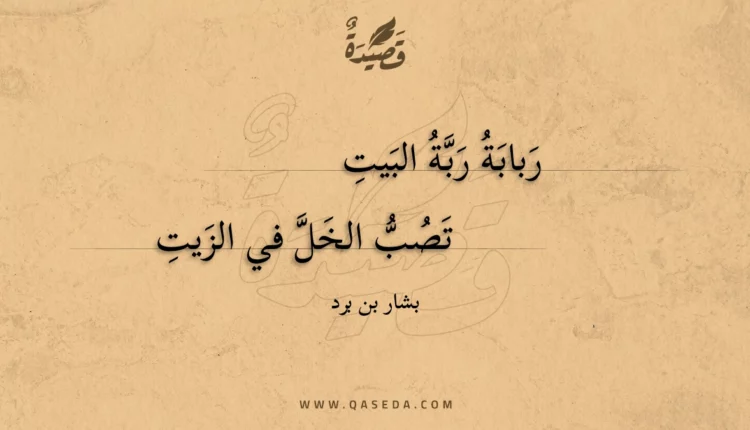 قَصِيدَةٌ
رَبابَةُ رَبَّةُ البَيتِ
تَصُبُّ الخَلَّ في الزَيتِ
بشار بن برد
WWW.QASEDA.COM